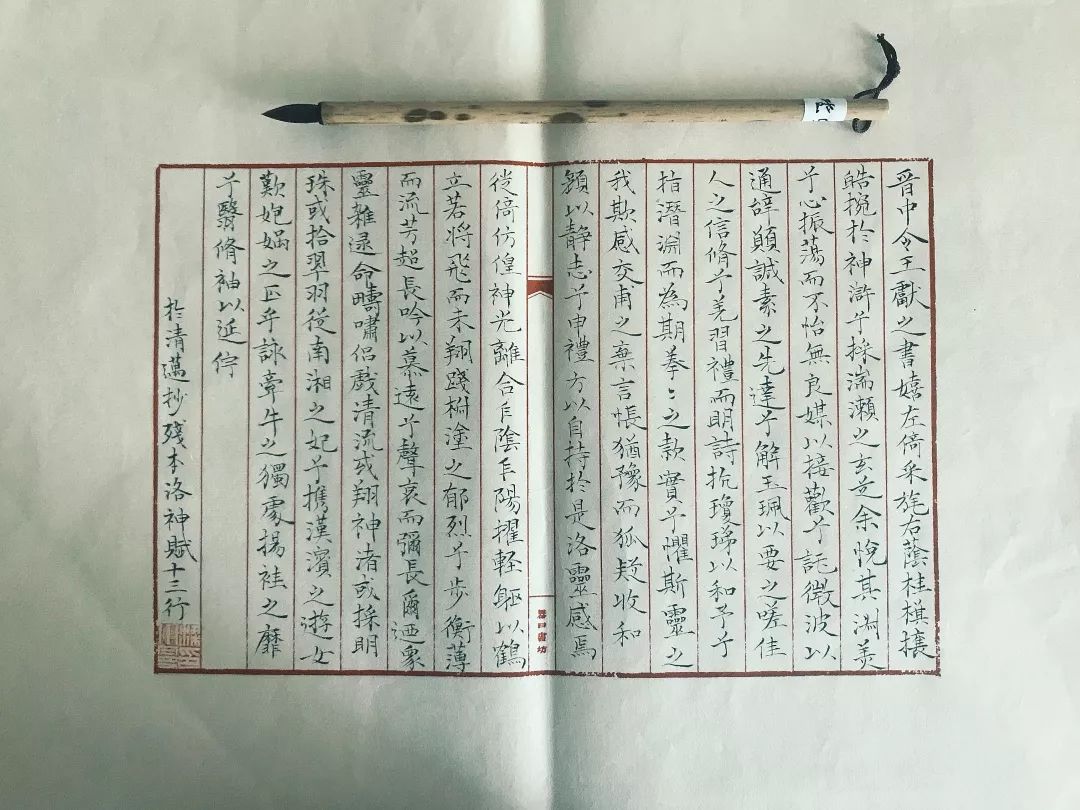 晉中令王獻之書嬉左倚采旄右蔭桂旗攘
皓捥於神滸兮採湍瀨之玄芝余悅其淑美
兮心振蕩而不怡無良媒以接歡兮託微波以
通辝願誠素之先達兮解玉珮以要之嗟佳
人之信脩兮羌習禮而明詩抗瓊珶以和予兮
指潛淵而為期拳〻之款實兮懼斯靈之
我欺感交甫之棄言悵猶豫而狐疑收和
顏以靜志兮申禮方以自持於是洛靈感焉
徙倚仿偟神光離合乍陰乍陽擢輕軀以鶴
立若將飛而未翔踐椒塗之郁烈兮步衡薄
而流芳超長吟以慕遠兮聲哀而彌長爾迺衆
靈雜遝命疇嘯侶戲清流或翔神渚或採明
珠或拾翠羽從南湘之妃兮攜漢濱之遊女
歎匏媧之匹兮詠牽牛之獨處揚袿之靡
兮翳脩袖以延佇
於清邁抄殘本洛神賦十三行
口書坊